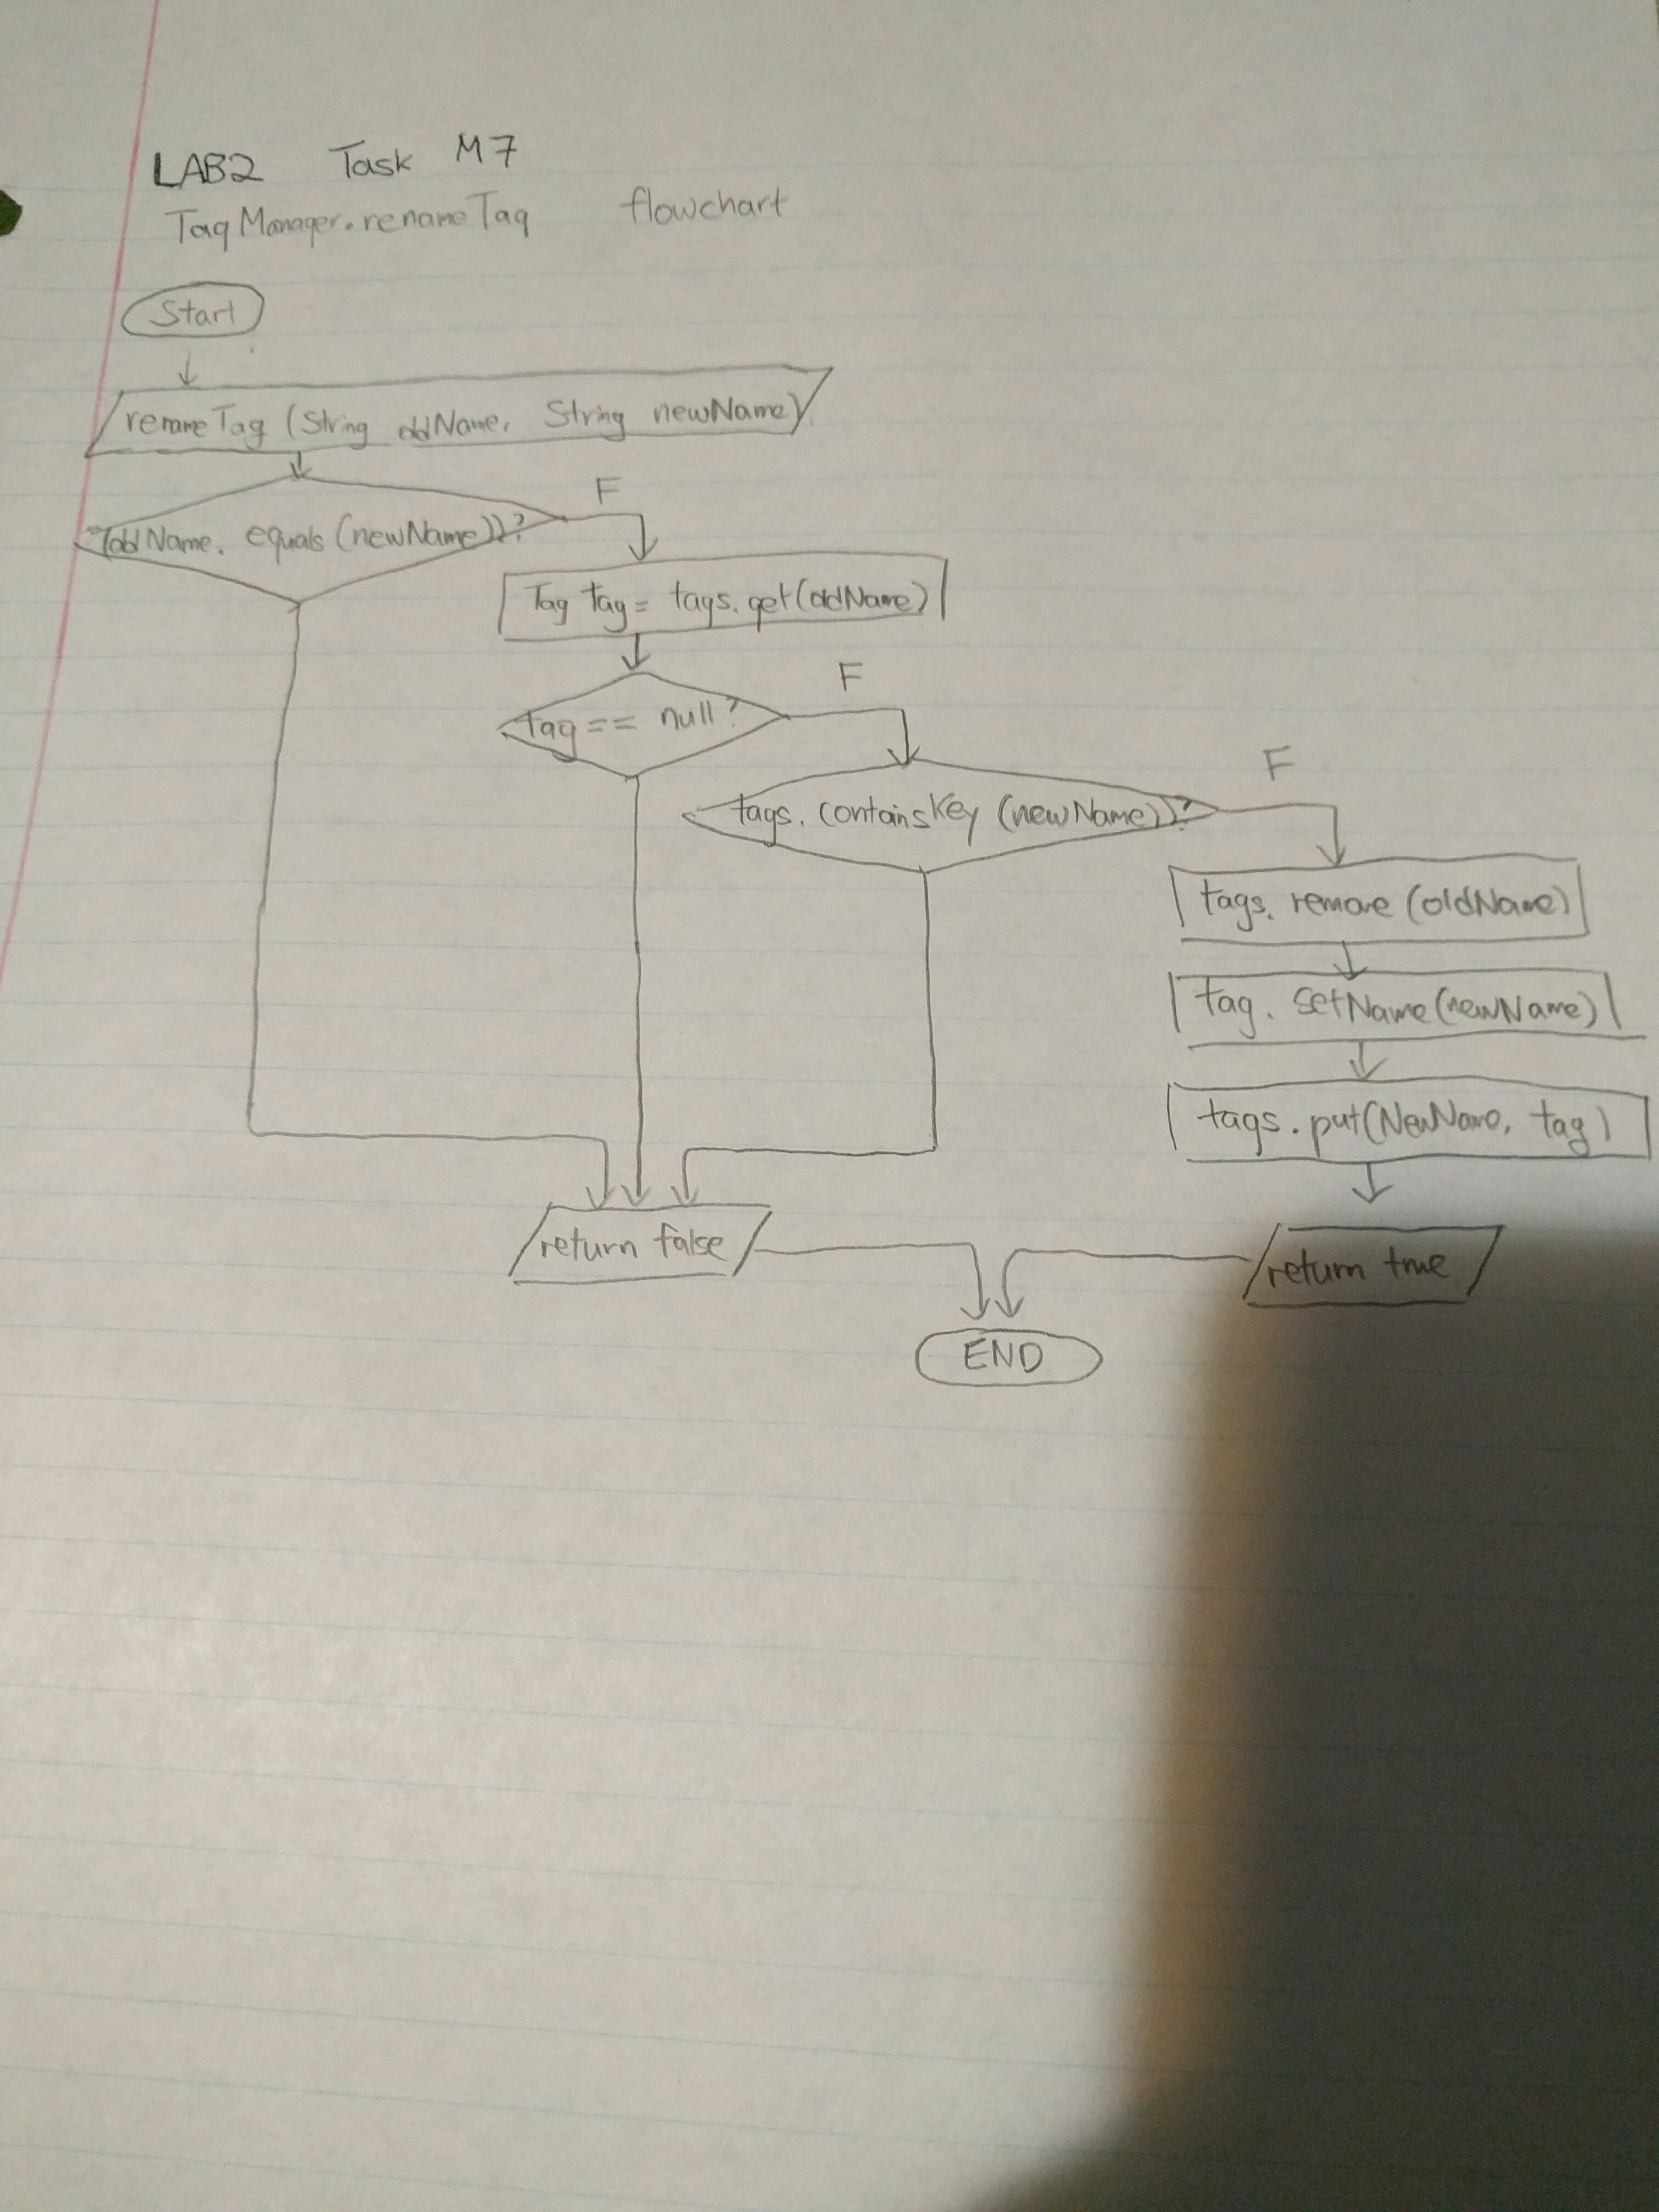 LAB2 Task M7
TagManager.renameTag flowchart
Start
renameTag (String oldName, String newName)
(oldName. equals (newName))?
F
Tag tag = tags.get(oldName)
F
tag == null?
F
tags. containsKey (newName))?
tags. remove (oldName)
tag. setName (newName)
tags. put(NewName, tag)
return false
return true
END